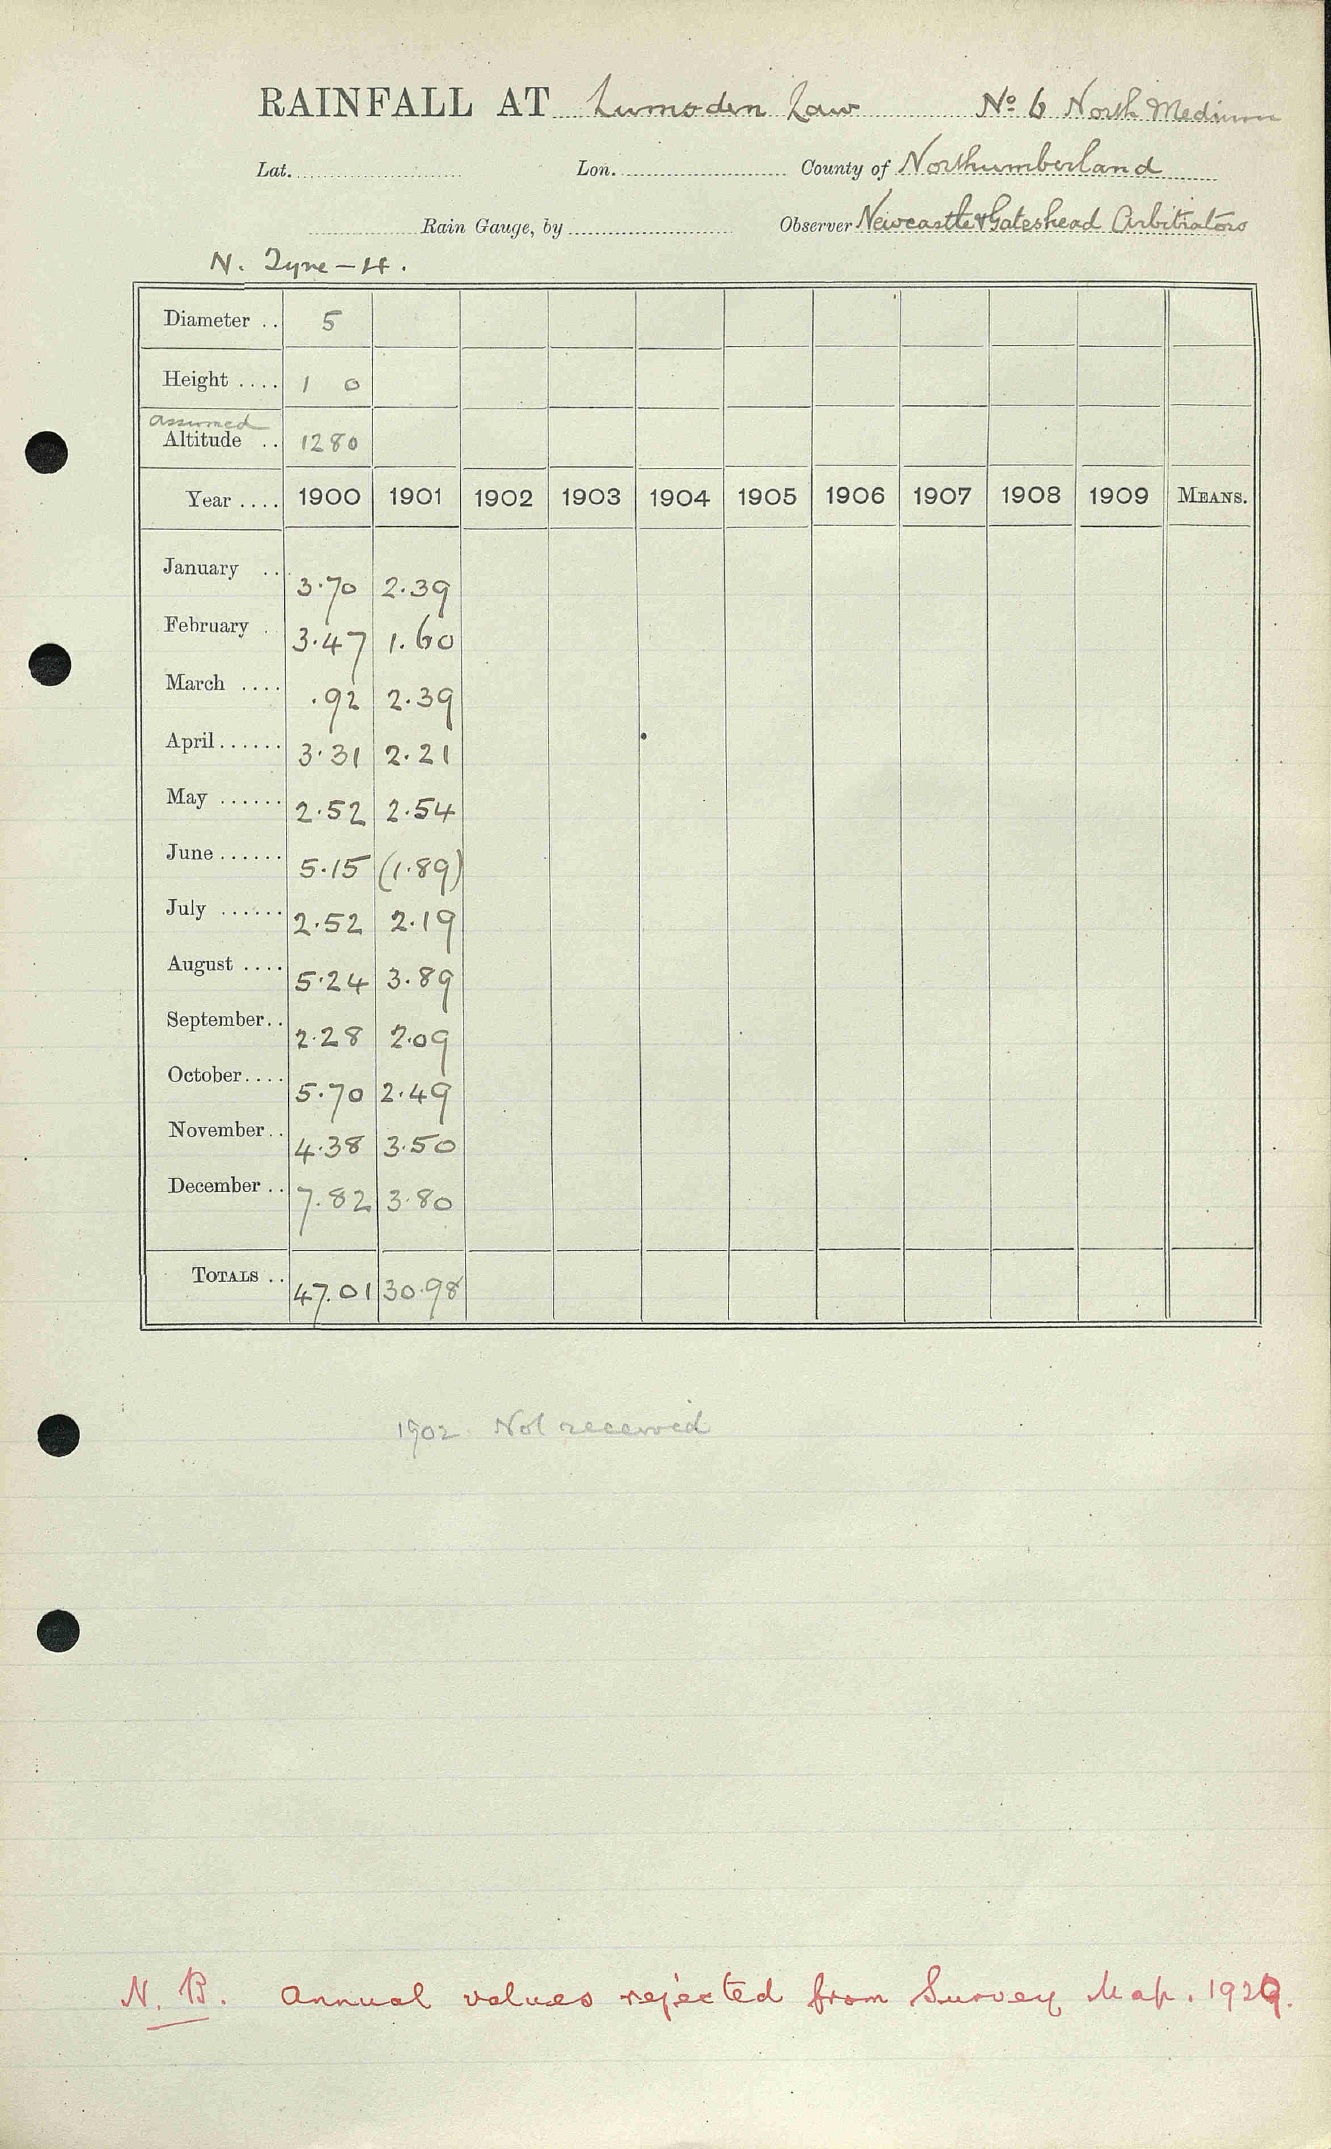 RAINFALL AT Lumsden Law No 6 North Medium
Lat. Lon. County of Northumberland
Rain Gauge, by Observer Newcastle & Gateshead Arbitrators
N. Tyne – 4.
Diameter .. 5
Height .... 1 0
assumed
Altitude .. 1280
Year .... 1900 1901 1902 1903 1904 1905 1906 1907 1908 1909 MEANS.
January .. 3.70 2.39
February . 3.47 1.60
March .... .92 2.39
April...... 3.31 2.21
May ...... 2.52 2.54
June...... 5.15 (1.89)
July ...... 2.52 2.19
August .... 5.24 3.89
September.. 2.28 2.09
October.... 5.70 2.49
November.. 4.38 3.50
December .. 7.82 3.80
TOTALS .. 47.01 30.98
1902 Not received
N. B. Annual values rejected from Survey Map. 1929.